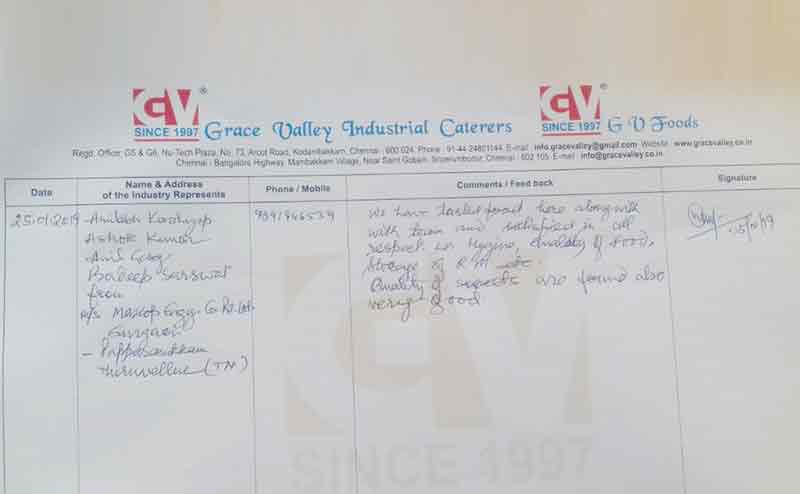 GV®
SINCE 1997
Grace Valley Industrial Caterers
GV®
SINCE 1997
G V Foods
Regd. Office: G5 & G6, Nu-Tech Plaza, No. 73, Arcot Road, Kodambakkam, Chennai - 600 024, Phone : 91-44-24801144, E-mail : info.gracevalley@gmail.com Website : www.gracevalley.co.in
Chennai / Bangalore Highway, Mambakkam Village, Near Saint Gobain, Sriperumbudur, Chennai - 602 105. E-mail : info@gracevalley.co.in
Date
Name & Address
of the Industry Represents
Phone / Mobile
Comments / Feed back
Signature
Ashok Kumar
from
M/s
Gurgaon
Thiruvallur (TN)
We have tasted food here along with
with team and satisfied in all
respect i.e. Hygine, Quality of Food,
Storage of R.M etc.
Quality of are found also
very good
GV
SINCE 1997